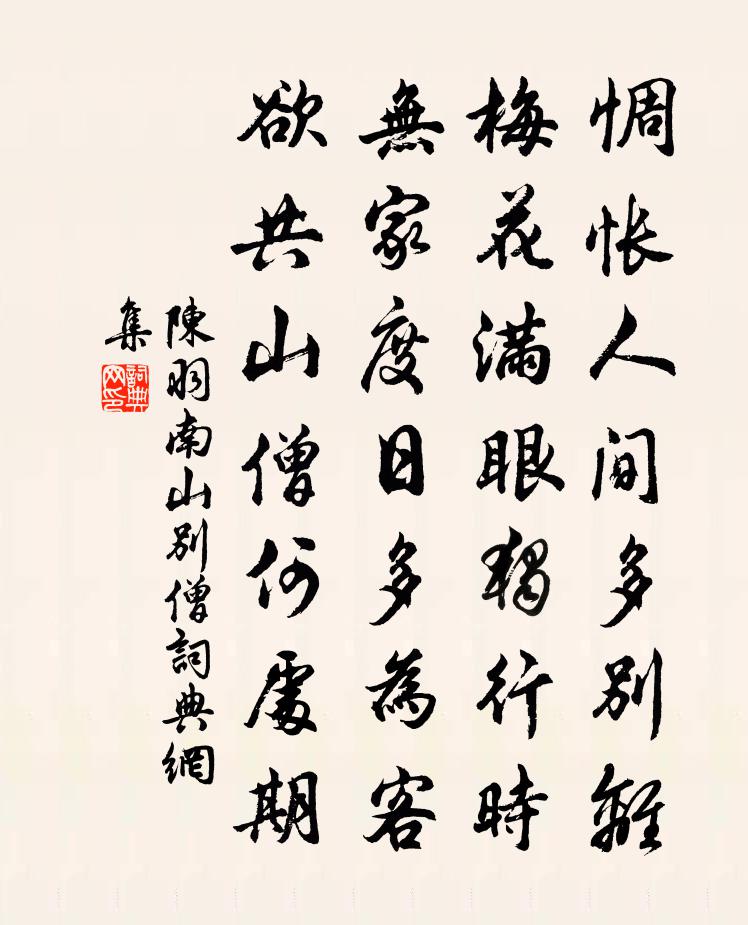 惆悵人間多別離
梅花滿眼獨行時
無家度日多為客
欲共山僧何處期
陳羽南山別僧詞典網
集
詞典
网印